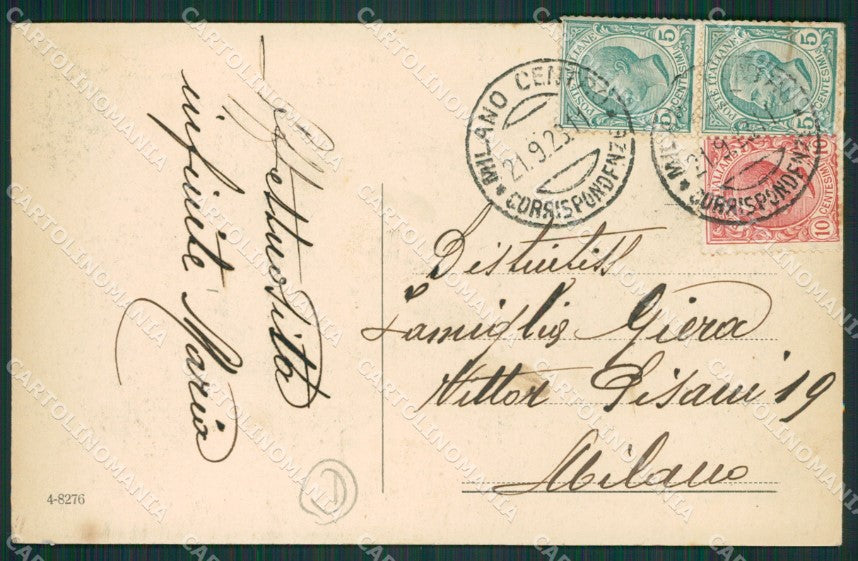 Affettuosità
infinite Maria
MILANO CENTRO
21.9.23.11
* CORRISPONDENZE *
POSTE ITALIANE
5 CENTESIMI 5
POSTE ITALIANE
5 CENTESIMI 5
10 CENTESIMI 10
Distintiss
Famiglia Giera
Vittor Pisani 19
Milano
4-8276
CARTOLINOMANIA